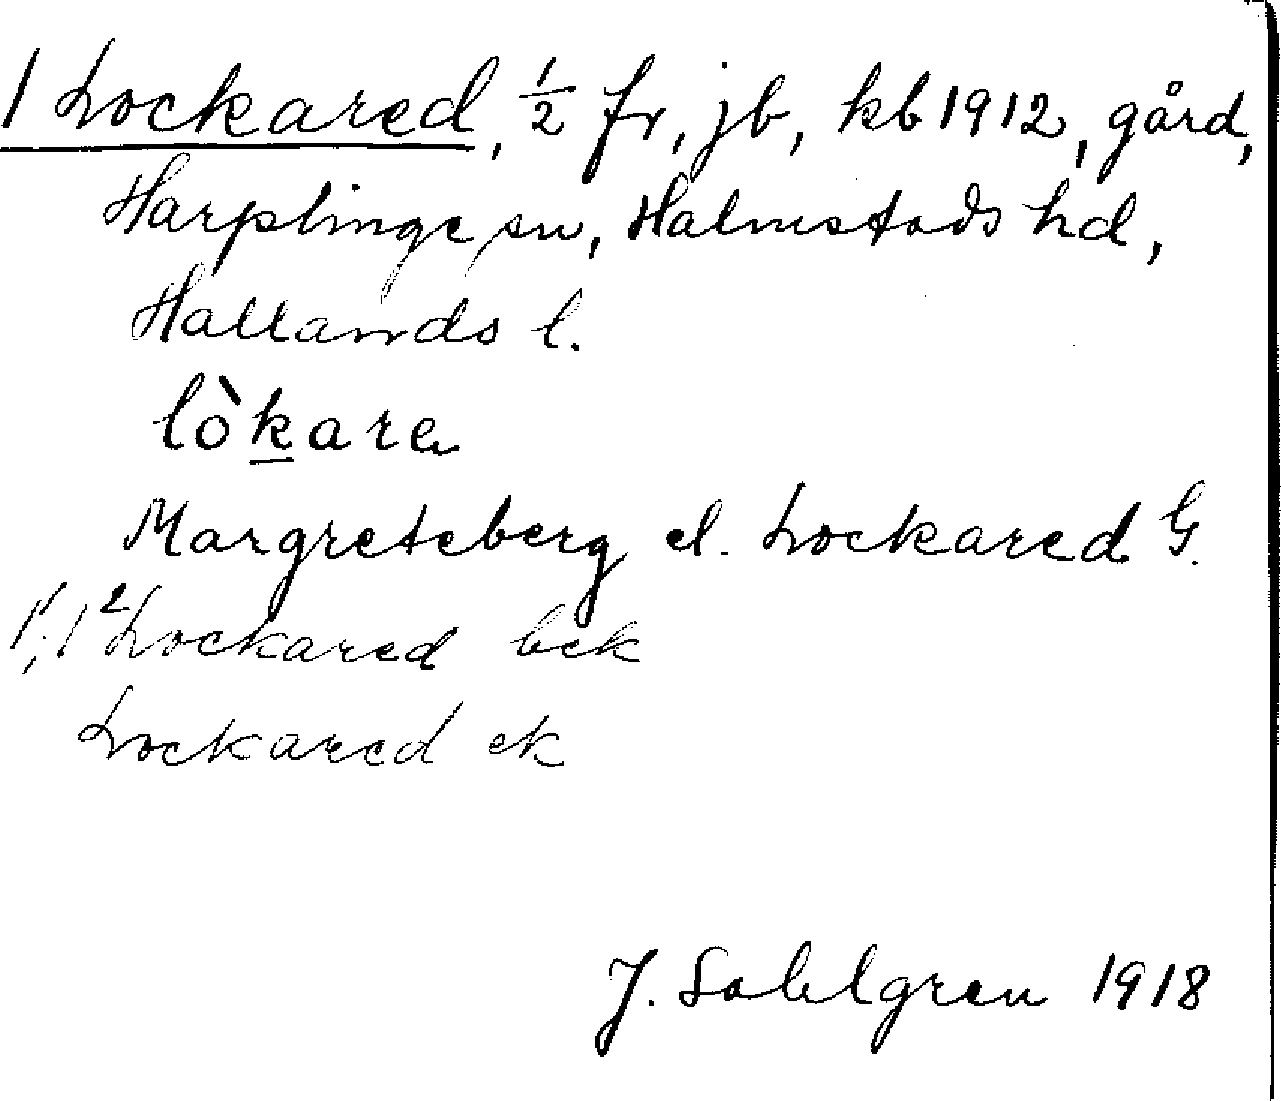 1 Lockared, ½ fr, jb, kb 1912, gård,
Harplinge sn, Halmstads hd,
Hallands l.
lòkare
Margreteberg el. Lockared G.
1¹, 1² Lockared bek
Lockared ek
J. Sahlgren 1918